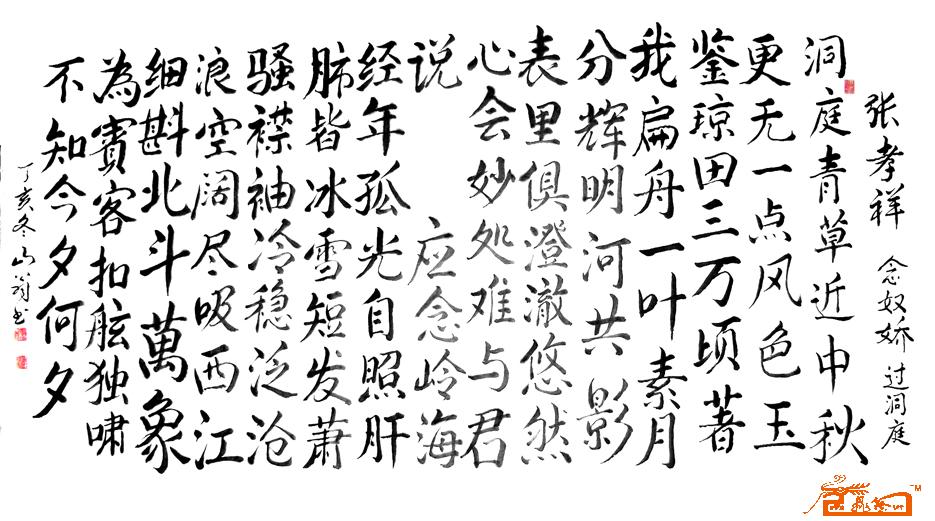 张孝祥 念奴娇 过洞庭
洞庭青草近中秋
更无一点风色玉
鉴琼田三万顷著
我扁舟一叶素月
分辉明河共影
表里俱澄澈悠然
心会妙处难与君
说 应念岭海
经年孤光自照肝
肺皆冰雪短发萧
骚襟袖冷稳泛沧
浪空阔尽吸西江
细斟北斗萬象
為賓客扣舷独啸
不知今夕何夕
丁亥冬山翁书